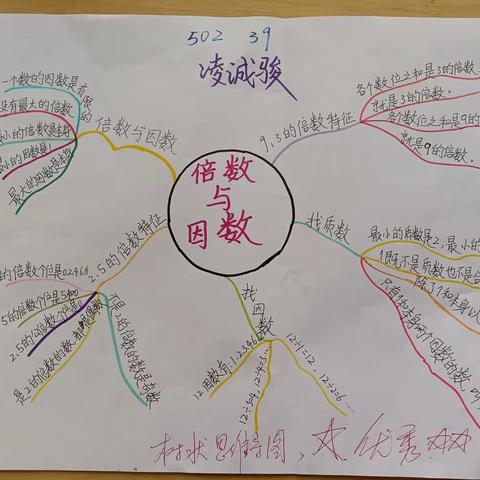 502 39
凌诚骏
倍数与因数
倍数与因数
一个数的因数是有限的
没有最大的倍数
最小的倍数是本身
最小的因数是1
最大的因数是本身
9,3的倍数特征
各个数位之和是3的倍数
就是3的倍数。
各个数位之和是9的
就是9的倍数。
找质数
最小的质数是2,最小的
1既不是质数也不是合
除了1和本身以
只有1和本身两个因数的数,叫
2.5的倍数特征
的倍数个位是0.2.4.6.8
5的倍数个位是5和0
2.5的公倍数个位是0
是2的倍数的数,都是偶数
不是2的倍数的数是奇数
找因数
12因数有:1.2.3.4.6
12÷4=3
12÷1=12,
12÷2=6...
树状思维导图,大优秀